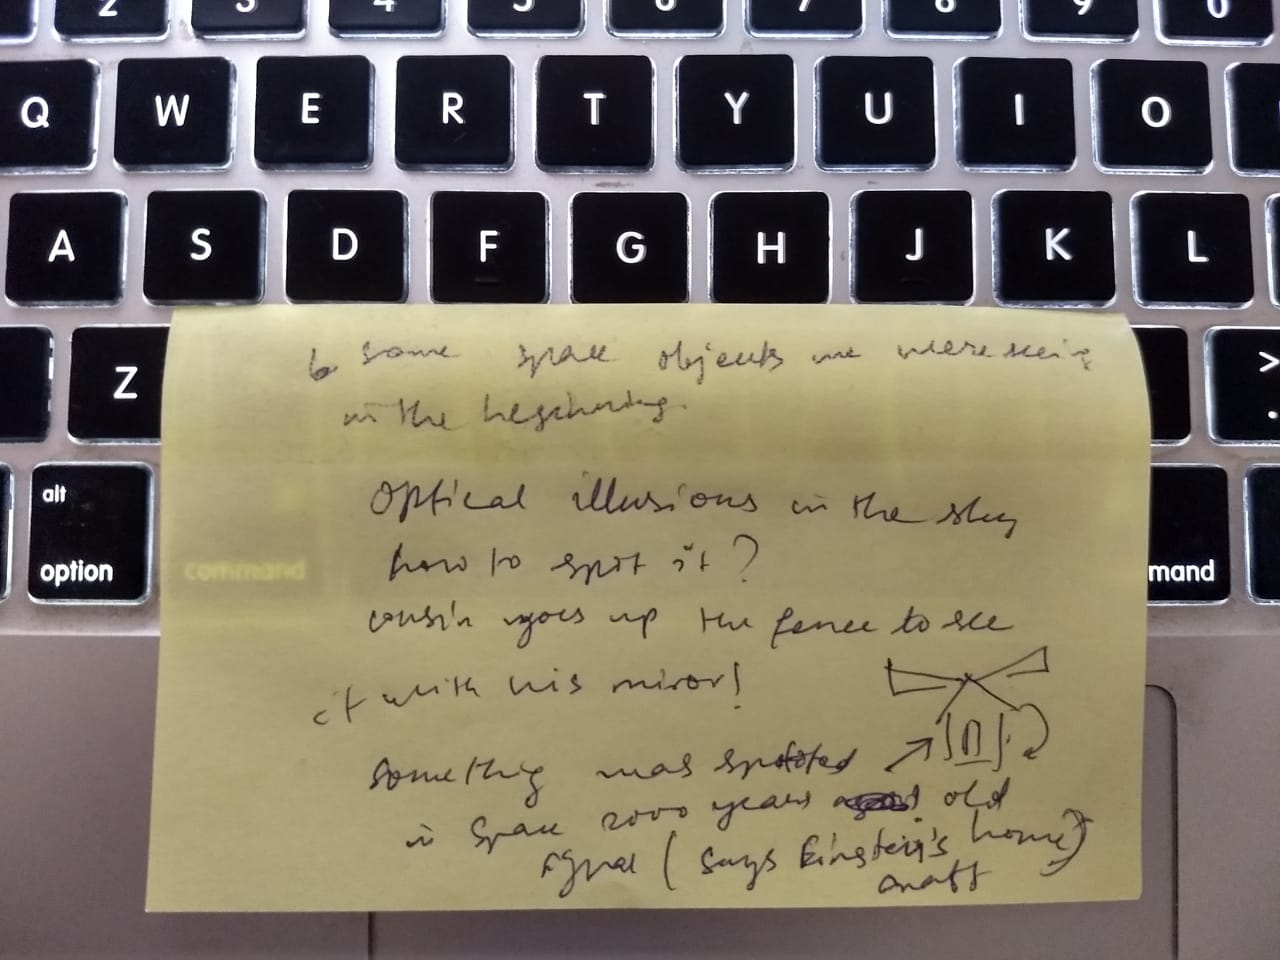 2 3 4 5 6 7 8 9 0
Q W E R T Y U I O
A S D F G H J K L
Z >
.
alt
option
command
mand
some space objects we were seeing
in the beginning.
Optical illusions in the sky
how to spit it?
cousin goes up the fence to see
it with his miror!
something was spotted
in space 2000 years old
(says Einstein's home)